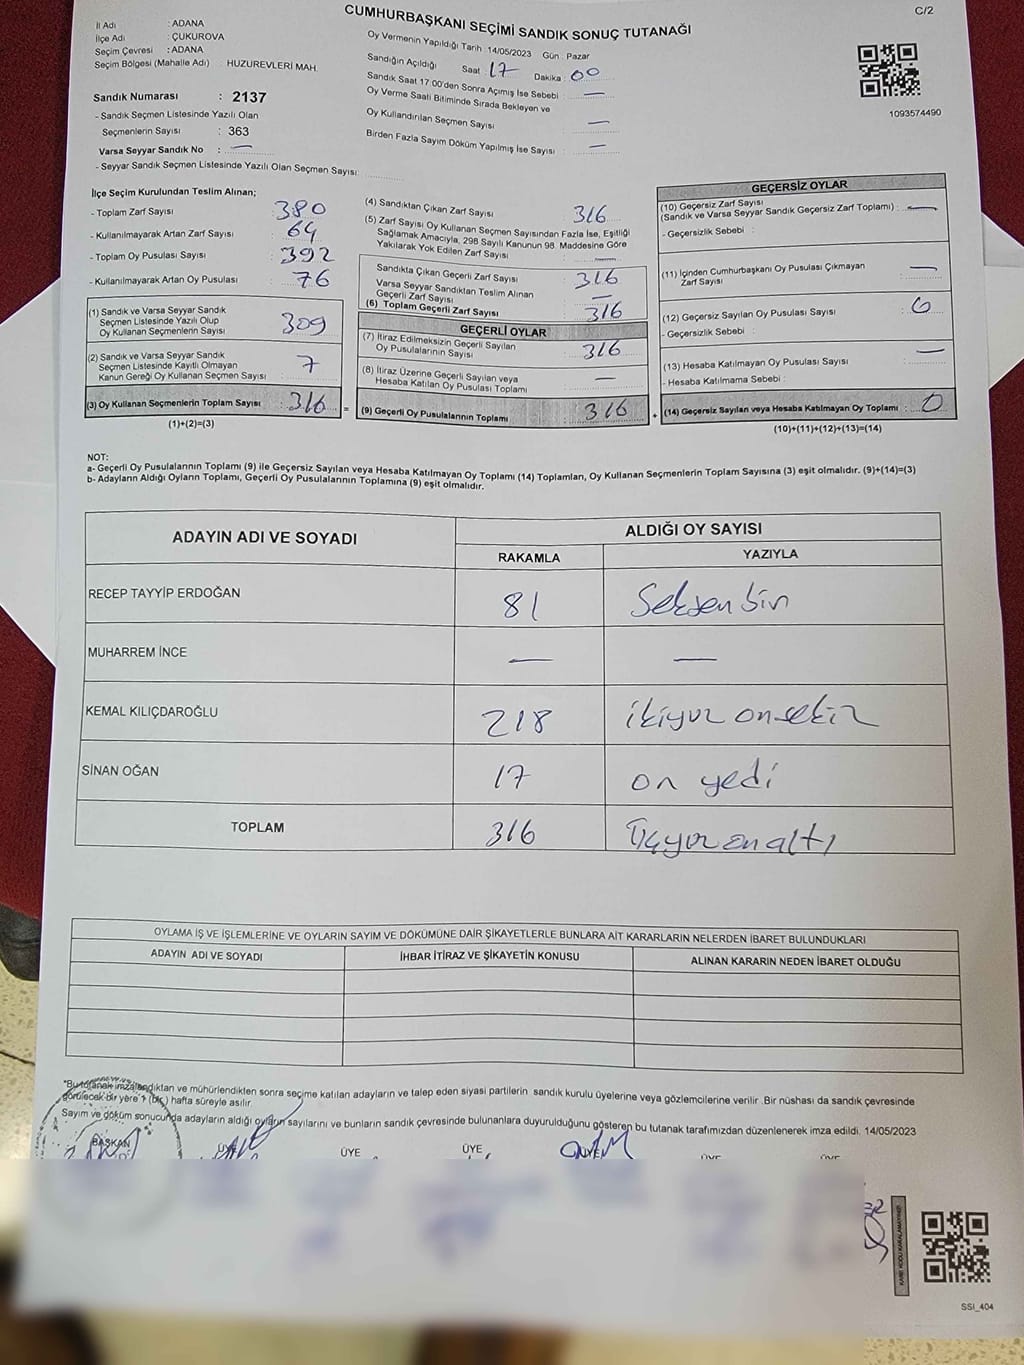 CUMHURBAŞKANI SEÇİMİ SANDIK SONUÇ TUTANAĞI
C/2
İl Adı : ADANA
İlçe Adı : ÇUKUROVA
Seçim Çevresi : ADANA
Seçim Bölgesi (Mahalle Adı) : HUZUREVLERİ MAH.
Sandık Numarası : 2137
- Sandık Seçmen Listesinde Yazılı Olan
Seçmenlerin Sayısı : 363
Varsa Seyyar Sandık No : —
- Seyyar Sandık Seçmen Listesinde Yazılı Olan Seçmen Sayısı:
Oy Vermenin Yapıldığı Tarih : 14/05/2023 Gün : Pazar
Sandığın Açıldığı Saat : 17 Dakika : 00
Sandık Saat 17:00'den Sonra Açımış İse Sebebi : —
Oy Verme Saati Bitiminde Sırada Bekleyen ve
Oy Kullandırılan Seçmen Sayısı : —
Birden Fazla Sayım Döküm Yapılmış İse Sayısı : —
1093574490
İlçe Seçim Kurulundan Teslim Alınan;
- Toplam Zarf Sayısı : 380
- Kullanılmayarak Artan Zarf Sayısı : 64
- Toplam Oy Pusulası Sayısı : 392
- Kullanılmayarak Artan Oy Pusulası : 76
(1) Sandık ve Varsa Seyyar Sandık
Seçmen Listesinde Yazılı Olup
Oy Kullanan Seçmenlerin Sayısı : 309
(2) Sandık ve Varsa Seyyar Sandık
Seçmen Listesinde Kayıtlı Olmayan
Kanun Gereği Oy Kullanan Seçmen Sayısı : 7
(3) Oy Kullanan Seçmenlerin Toplam Sayısı : 316
(1)+(2)=(3)
=
(4) Sandıktan Çıkan Zarf Sayısı 316
(5) Zarf Sayısı Oy Kullanan Seçmen Sayısından Fazla İse, Eşitliği
Sağlamak Amacıyla, 298 Sayılı Kanunun 98. Maddesine Göre
Yakılarak Yok Edilen Zarf Sayısı : —
Sandıkta Çıkan Geçerli Zarf Sayısı : 316
Varsa Seyyar Sandıktan Teslim Alınan
Geçerli Zarf Sayısı : —
(6) Toplam Geçerli Zarf Sayısı : 316
GEÇERLİ OYLAR
(7) İtiraz Edilmeksizin Geçerli Sayılan
Oy Pusulalarının Sayısı : 316
(8) İtiraz Üzerine Geçerli Sayılan veya
Hesaba Katılan Oy Pusulası Toplamı : —
(9) Geçerli Oy Pusulalarının Toplamı : 316
+
GEÇERSİZ OYLAR
(10) Geçersiz Zarf Sayısı
(Sandık ve Varsa Seyyar Sandık Geçersiz Zarf Toplamı) : —
- Geçersizlik Sebebi :
(11) İçinden Cumhurbaşkanı Oy Pusulası Çıkmayan
Zarf Sayısı : —
(12) Geçersiz Sayılan Oy Pusulası Sayısı : 0
- Geçersizlik Sebebi :
(13) Hesaba Katılmayan Oy Pusulası Sayısı : —
- Hesaba Katılmama Sebebi :
(14) Geçersiz Sayılan veya Hesaba Katılmayan Oy Toplamı : 0
(10)+(11)+(12)+(13)=(14)
NOT:
a- Geçerli Oy Pusulalarının Toplamı (9) ile Geçersiz Sayılan veya Hesaba Katılmayan Oy Toplamı (14) Toplamları, Oy Kullanan Seçmenlerin Toplam Sayısına (3) eşit olmalıdır. (9)+(14)=(3)
b- Adayların Aldığı Oyların Toplamı, Geçerli Oy Pusulalarının Toplamına (9) eşit olmalıdır.
ADAYIN ADI VE SOYADI
ALDIĞI OY SAYISI
RAKAMLA YAZIYLA
RECEP TAYYİP ERDOĞAN 81 Seksen bir
MUHARREM İNCE — —
KEMAL KILIÇDAROĞLU 218 ikiyüz onsekiz
SİNAN OĞAN 17 on yedi
TOPLAM 316 Üçyüz on altı
OYLAMA İŞ VE İŞLEMLERİNE VE OYLARIN SAYIM VE DÖKÜMÜNE DAİR ŞİKAYETLERLE BUNLARA AİT KARARLARIN NELERDEN İBARET BULUNDUKLARI
ADAYIN ADI VE SOYADI İHBAR İTİRAZ VE ŞİKAYETİN KONUSU ALINAN KARARIN NEDEN İBARET OLDUĞU
"Bu tutanak imzalandıktan ve mühürlendikten sonra seçime katılan adayların ve talep eden siyasi partilerin sandık kurulu üyelerine veya gözlemcilerine verilir. Bir nüshası da sandık çevresinde
görülecek bir yere 1 (bir) hafta süreyle asılır.
Sayım ve döküm sonucunda adayların aldığı oyların sayılarını ve bunların sandık çevresinde bulunanlara duyurulduğunu gösteren bu tutanak tarafımızdan düzenlenerek imza edildi. 14/05/2023
BAŞKAN ÜYE ÜYE ÜYE ÜYE ÜYE ÜYE
SSI_404